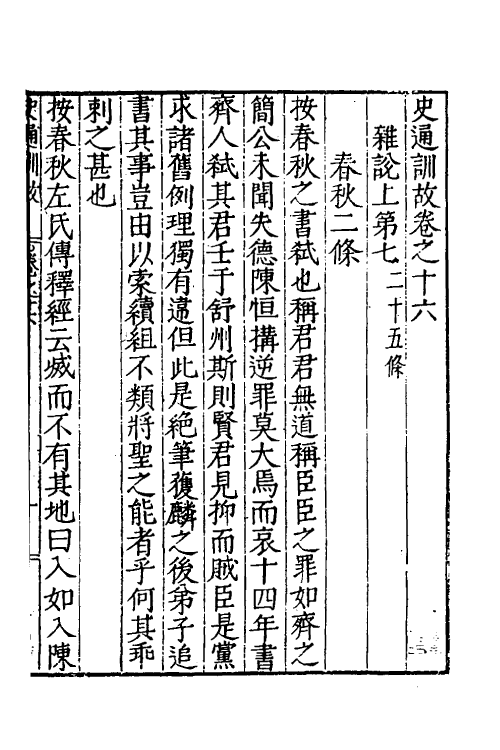 史通訓故卷之十六
雜說上第七二十五條
春秋二條
按春秋之書弒也稱君君無道稱臣臣之罪如齊之
簡公未聞失德陳恒搆逆罪莫大焉而哀十四年書
齊人弒其君壬于舒州斯則賢君見抑而賊臣是黨
求諸舊例理獨有違但此是絶筆獲麟之後弟子追
書其事豈由以索續組不類將聖之能者乎何其乖
剌之甚也
按春秋左氏傳釋經云滅而不有其地曰入如入陳
史通訓故